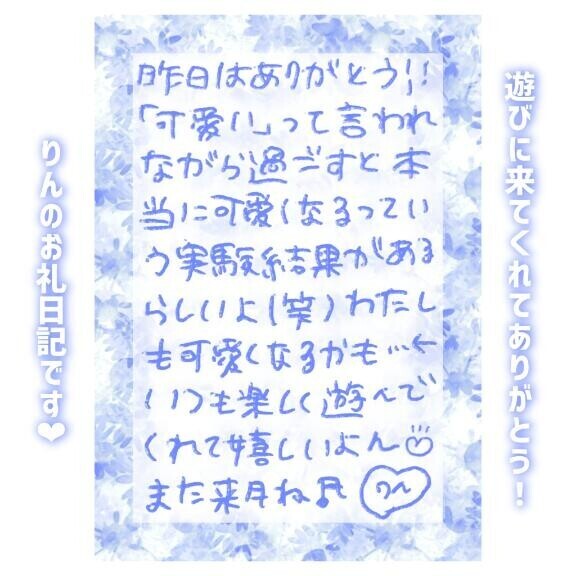 遊びに来てくれてありがとう!
昨日はありがとう!!
「可愛い」って言われ
ながら過ごすと本
当に可愛くなるってい
う実験結果がある
らしいよ(笑)わたし
も可愛くなるかも…←
いつも楽しく遊んで
くれて嬉しいよん
また来月ね♬
りん
りんのお礼日記です❤